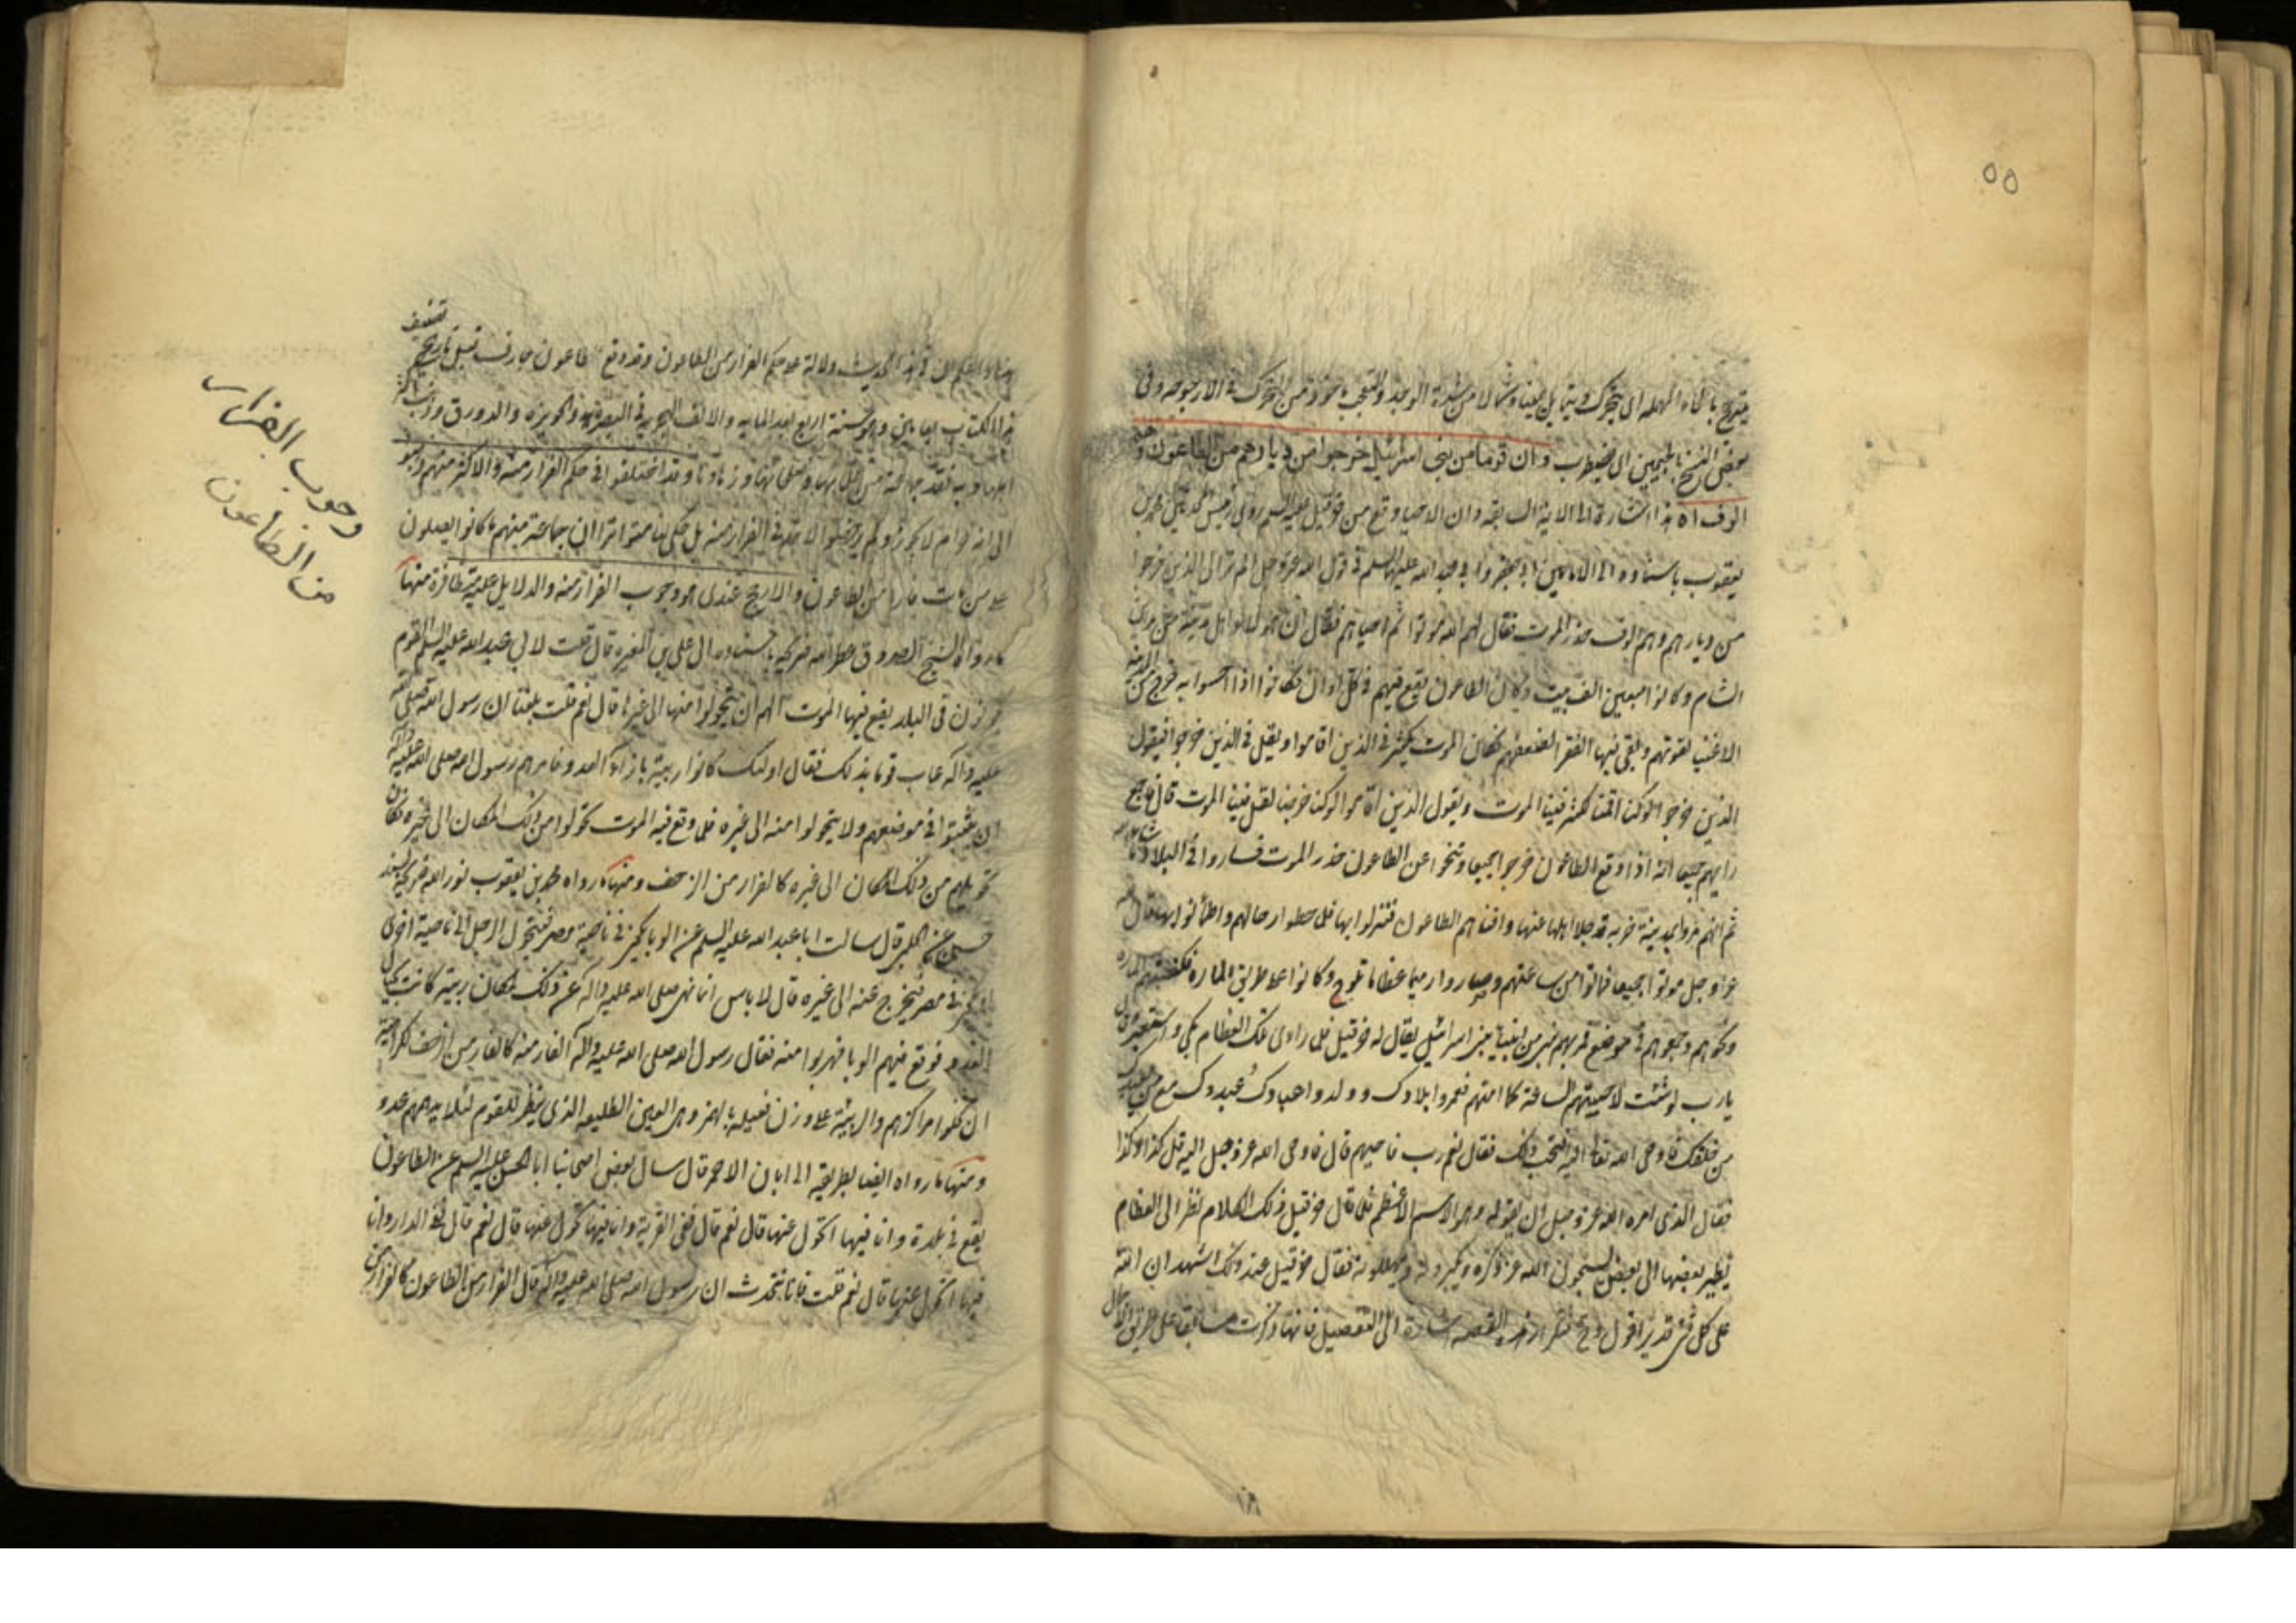 ٥٥
يترجح بالحاء المهملة اى يتحرك ويتمايل يمينا وشمالا من شدة الوجد والتعجب ماخوذ من التحرك فى الارجوحة وفى
بعض النسخ بالجيمين اى يضطرب وان قوما من بنى اسرائيل خرجوا من ديارهم من الطاعون وهم
الوف اه هذا اشارة الى الاية السابقة وان الاحيا وقع من حزقيل عليه السلم روى محمد بن
يعقوب باسناده الى الامامين ابى جعفر وابى عبد الله عليهما السلم فى قول الله عز وجل الم تر الى الذين خرجوا
من ديارهم وهم الوف حذر الموت فقال لهم الله موتوا ثم احياهم فقال ان هؤلاء اهل مدينة من مدن
الشام وكانوا سبعين الف بيت وكان الطاعون يقع فيهم فى كل اوان فكانوا اذا احسوا به خرج من المدينة
الاغنيا لقوتهم وبقى فيها الفقرا لضعفهم فكان الموت يكثر فى الذين اقاموا ويقل فى الذين خرجوا فيقول
الذين خرجوا لو كنا اقمنا لكثر فينا الموت ويقول الذين اقاموا لو كنا خرجنا لقل فينا الموت قال فاجمع
رايهم جميعا انه اذا وقع الطاعون خرجوا جميعا وتنحوا عن الطاعون حذر الموت فساروا فى البلاد ما شاء الله
ثم انهم مروا بمدينة خربة قد جلا اهلها عنها وافناهم الطاعون فنزلوا بها فلما حطوا رحالهم واطمانوا بها قال الله
عز وجل موتوا جميعا فماتوا من ساعتهم وصاروا رميما عظاما تلوح وكانوا على طريق المارة فكنستهم المارة
ونحوهم وجمعوهم فى موضع فمر بهم نبى من انبياء بنى اسرائيل يقال له حزقيل فلما راى تلك العظام بكى واستعبر وقال
يارب لو شئت لاحييتهم الساعة كما امتهم فعمروا بلادك وولدوا عبادك وعبدوك مع من يعبدك
من خلقك فاوحى الله تعالى اليه افتحب ذلك فقال نعم رب فاحيهم قال فاوحى الله عز وجل اليه قل كذا وكذا
فقال الذى امره الله عز وجل ان يقوله وهو الاسم الاعظم فلما قال حزقيل ذلك الكلام نظر الى العظام
يطير بعضها الى بعض يسبحون الله عز ذكره ويكبرونه ويهللونه فقال حزقيل عند ذلك اشهد ان الله
على كل شى قدير اقول وفى هذه القصة اشارة الى التفصيل فانها ذكرت سابقا على طريق الاجمال
واعلم ان فى هذا الحديث دلالة على حكم الفرار من الطاعون وقد وقع طاعون جارف قبل تاريخ تصنيف
هذا الكتاب بعامين وهو سنة اربع بعد المايه والالف الهجرية فى البصرة والحويزه والدورق وذهب اكثر
اهلها وبه فقد جماعة من علمائها وصلحائها وزهادنا وقد اختلفوا فى حكم الفرار منه والاكثر منهم ذهبوا
الى انه حرام لا يجوز ولم يرخصوا لاحد فى الفرار منه بل حكى لنا متواترا ان جماعة منهم ما كانوا يصلون
على من مات فارا من الطاعون والارجح عندى هو وجوب الفرار منه والدلايل عليه متظافرة منها
ما رواه الشيخ الصدوق عطر الله مرقده باسناده الى على بن المغيره قال قلت لابى عبد الله عليه السلم القوم
يكونون فى البلد يقع فيها الموت الهم ان يتحولوا منها الى غيرها قال نعم قلت بلغنا ان رسول الله صلى الله
عليه واله عاب قوما بذلك فقال اولئك كانوا ربيئة بازاء العدو فامرهم رسول الله صلى الله عليه واله
ان يثبتوا فى موضعهم ولا يتحولوا منه الى غيره فلما وقع فيه الموت تحولوا من ذلك المكان الى غيره فكان
تحويلهم من ذلك المكان الى غيره كالفرار من الزحف ومنها ما رواه محمد بن يعقوب نور الله ضريحه بسند
حسن عن الحلبى قال سالت ابا عبد الله عليه السلم عن الوبا يكون فى ناحية مصر فيتحول الرجل الى ناحية اخرى
او يكون فى مصر فيخرج عنه الى غيره قال لا باس انما نهى صلى الله عليه واله عن ذلك لمكان ربيئة كانت بحيال
العدو فوقع فيهم الوبا فهربوا منه فقال رسول الله صلى الله عليه واله الفار منه كالفار من الزحف كراهية
ان تخلو مراكزهم والربيئة على وزن فعيله بالهمز وهى العين الطليعه الذى ينظر للقوم لئلا يدهمهم عدو
ومنها ما رواه ايضا بطريقه الى ابان الاحمر قال سال بعض اصحابنا ابا الحسن عليه السلم عن الطاعون
يقع فى بلدة وانا فيها اتحول عنها قال نعم قال ففى القرية وانا فيها اتحول عنها قال نعم قال ففى الدار وانا
فيها اتحول عنها قال نعم قلت فانا نتحدث ان رسول الله صلى الله عليه واله قال الفرار من الطاعون كالفرار من
وجوب الفرار
من الطاعون